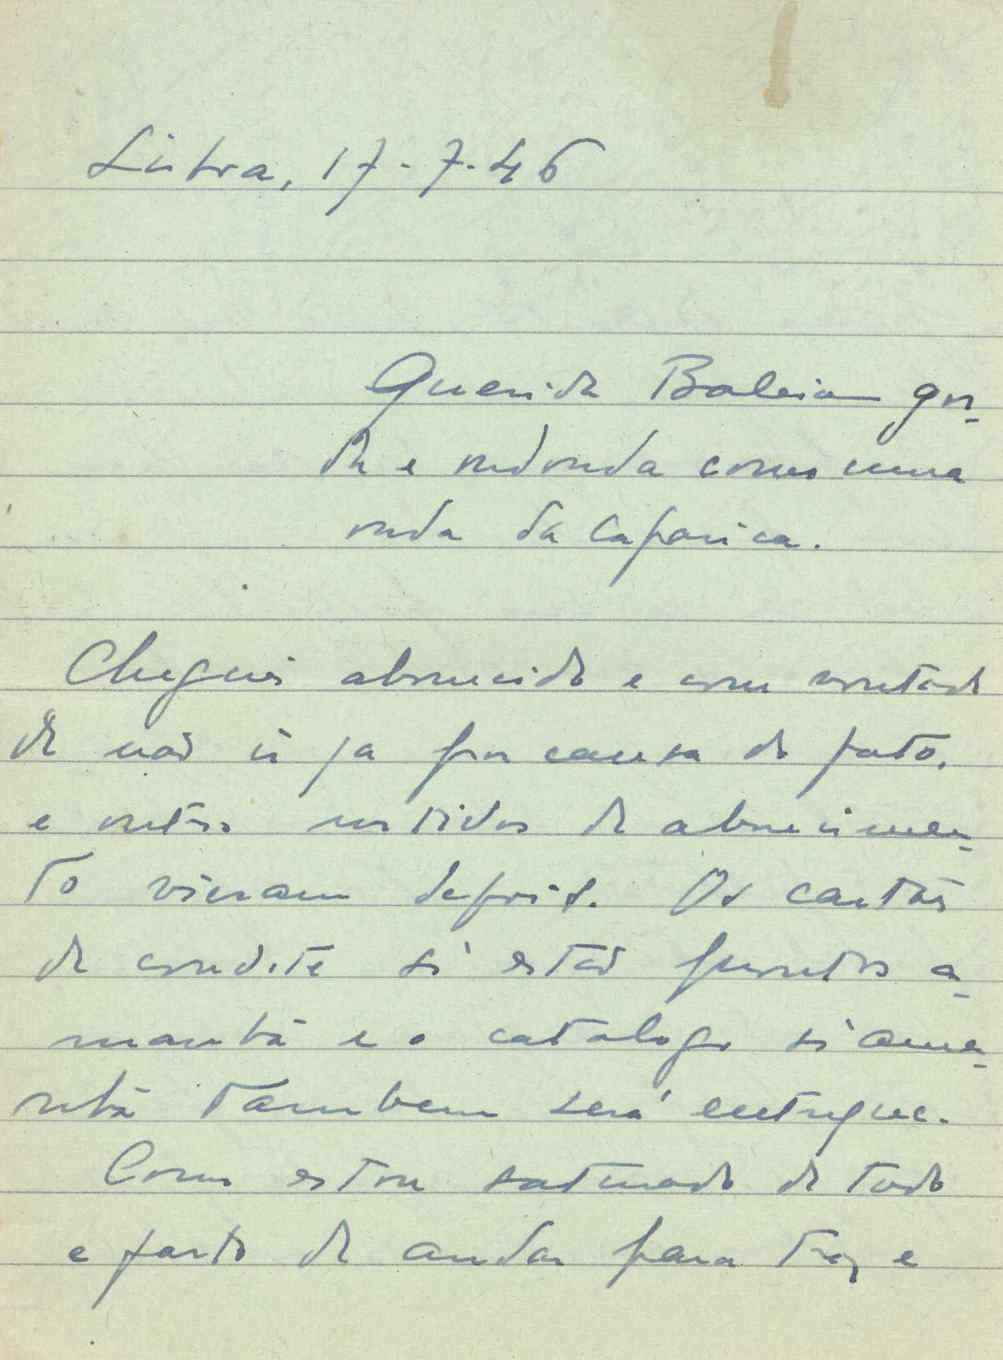 Lisboa, 17-7-46
Querida Baleia gor-
da e redonda como uma
onda da Caparica.
Cheguei aborrecido e com vontade
de não ir já por causa do fato.
e outros motivos de aborrecimen-
to vieram depois. Os cartões
de convite só estão prontos a-
manhã e o catalogo só ama-
nhã tambem será entregue.
Como estou saturado de tudo
e farto de andar para traz e